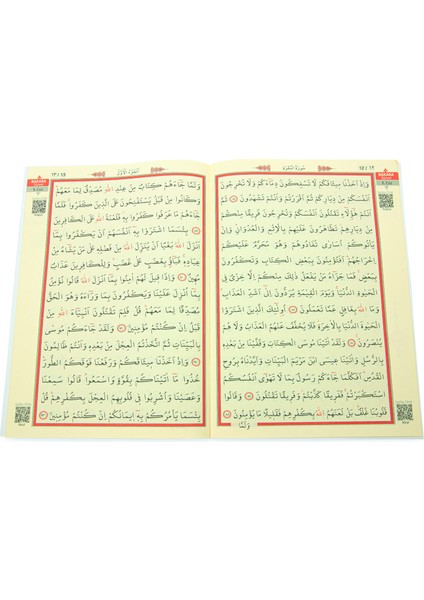 سُورَةُ الْبَقَرَةِ
وَاِذْ اَخَذْنَا مِيثَاقَكُمْ لَا تَسْفِكُونَ دِمَٓاءَكُمْ وَلَا تُخْرِجُونَ
اَنْفُسَكُمْ مِنْ دِيَارِكُمْ ثُمَّ اَقْرَرْتُمْ وَاَنْتُمْ تَشْهَدُونَ ثُمَّ
اَنْتُمْ هٰٓؤُلَٓاءِ تَقْتُلُونَ اَنْفُسَكُمْ وَتُخْرِجُونَ فَرِيقًا مِنْكُمْ
مِنْ دِيَارِهِمْ تَظَاهَرُونَ عَلَيْهِمْ بِالْاِثْمِ وَالْعُدْوَانِ وَاِنْ
يَأْتُوكُمْ اُسَارٰى تُفَادُوهُمْ وَهُوَ مُحَرَّمٌ عَلَيْكُمْ
اِخْرَاجُهُمْ اَفَتُؤْمِنُونَ بِبَعْضِ الْكِتَابِ وَتَكْفُرُونَ
بِبَعْضٍ فَمَا جَزَٓاءُ مَنْ يَفْعَلُ ذٰلِكَ مِنْكُمْ اِلَّا خِزْيٌ فِي
الْحَيٰوةِ الدُّنْيَا وَيَوْمَ الْقِيٰمَةِ يُرَدُّونَ اِلٰٓى اَشَدِّ الْعَذَابِ
وَمَا اللّٰهُ بِغَافِلٍ عَمَّا تَعْمَلُونَ اُولٰٓئِكَ الَّذِينَ اشْتَرَوُا
الْحَيٰوةَ الدُّنْيَا بِالْاٰخِرَةِ فَلَا يُخَفَّفُ عَنْهُمُ الْعَذَابُ وَلَا هُمْ
يُنْصَرُونَ وَلَقَدْ اٰتَيْنَا مُوسَى الْكِتَابَ وَقَفَّيْنَا مِنْ بَعْدِهِ
بِالرُّسُلِ وَاٰتَيْنَا عِيسَى ابْنَ مَرْيَمَ الْبَيِّنَاتِ وَاَيَّدْنَاهُ بِرُوحِ
الْقُدُسِ اَفَكُلَّمَا جَٓاءَكُمْ رَسُولٌ بِمَا لَا تَهْوٰٓى اَنْفُسُكُمُ
اسْتَكْبَرْتُمْ فَفَرِيقًا كَذَّبْتُمْ وَفَرِيقًا تَقْتُلُونَ وَقَالُوا
قُلُوبُنَا غُلْفٌ بَلْ لَعَنَهُمُ اللّٰهُ بِكُفْرِهِمْ فَقَلِيلًا مَا يُؤْمِنُونَ
وَلَمَّا
اَلْجُزْءُ الْاَوَّلُ
وَلَمَّا جَٓاءَهُمْ كِتَابٌ مِنْ عِنْدِ اللّٰهِ مُصَدِّقٌ لِمَا مَعَهُمْ
وَكَانُوا مِنْ قَبْلُ يَسْتَفْتِحُونَ عَلَى الَّذِينَ كَفَرُوا فَلَمَّا
جَٓاءَهُمْ مَا عَرَفُوا كَفَرُوا بِهِ فَلَعْنَةُ اللّٰهِ عَلَى الْكَافِرِينَ
بِئْسَمَا اشْتَرَوْا بِهِ اَنْفُسَهُمْ اَنْ يَكْفُرُوا بِمَٓا
اَنْزَلَ اللّٰهُ بَغْيًا اَنْ يُنَزِّلَ اللّٰهُ مِنْ فَضْلِهِ عَلٰى مَنْ يَشَٓاءُ مِنْ
عِبَادِهِ فَبَٓاؤُ بِغَضَبٍ عَلٰى غَضَبٍ وَلِلْكَافِرِينَ عَذَابٌ
مُهِينٌ وَاِذَا قِيلَ لَهُمْ اٰمِنُوا بِمَٓا اَنْزَلَ اللّٰهُ قَالُوا نُؤْمِنُ
بِمَٓا اُنْزِلَ عَلَيْنَا وَيَكْفُرُونَ بِمَا وَرَٓاءَهُ وَهُوَ الْحَقُّ
مُصَدِّقًا لِمَا مَعَهُمْ قُلْ فَلِمَ تَقْتُلُونَ اَنْبِيَٓاءَ اللّٰهِ مِنْ
قَبْلُ اِنْ كُنْتُمْ مُؤْمِنِينَ وَلَقَدْ جَٓاءَكُمْ مُوسٰى
بِالْبَيِّنَاتِ ثُمَّ اتَّخَذْتُمُ الْعِجْلَ مِنْ بَعْدِهِ وَاَنْتُمْ ظَالِمُونَ
وَاِذْ اَخَذْنَا مِيثَاقَكُمْ وَرَفَعْنَا فَوْقَكُمُ الطُّورَ
خُذُوا مَٓا اٰتَيْنَاكُمْ بِقُوَّةٍ وَاسْمَعُوا قَالُوا سَمِعْنَا
وَعَصَيْنَا وَاُشْرِبُوا فِي قُلُوبِهِمُ الْعِجْلَ بِكُفْرِهِمْ قُلْ
بِئْسَمَا يَأْمُرُكُمْ بِهِ اِيمَانُكُمْ اِنْ كُنْتُمْ مُؤْمِنِينَ